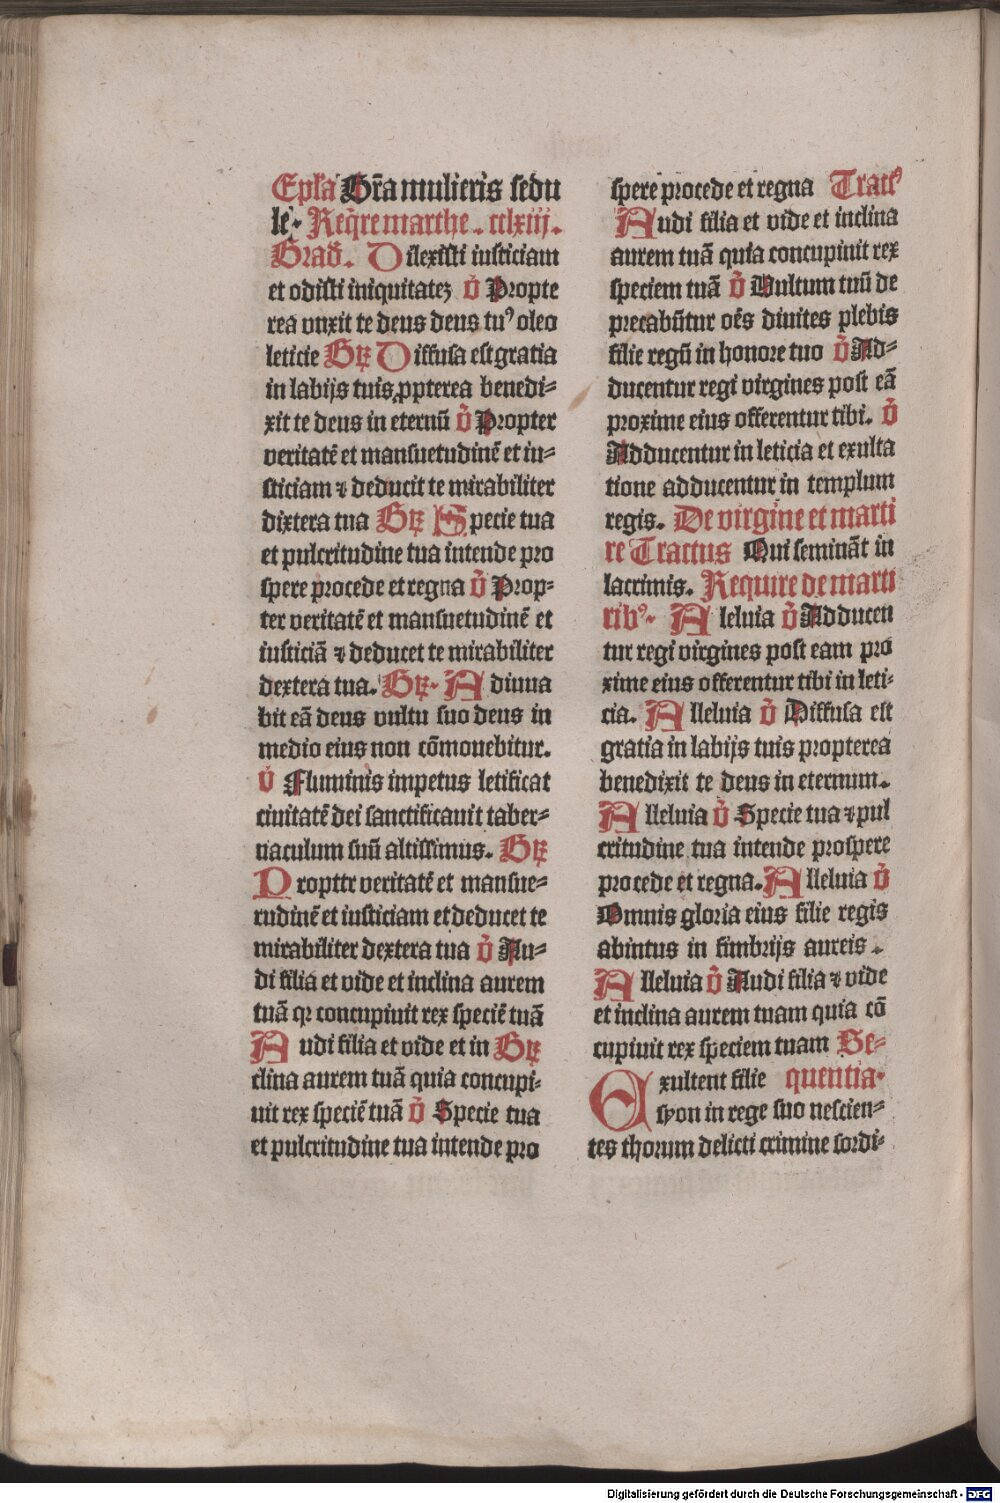 Epl̃a Gr̃a mulieris sedu
le. Reqͥre marthe. cclxiij.
Grad̃. Dilexisti iusticiam
et odisti iniquitatez ℣ Propte
rea vnxit te deus deus tuꝰ oleo
leticie Gꝛ̃ Diffusa est gratia
in labijs tuis ꝓpterea benedi-
xit te deus in eternū ℣ Propter
veritatē et mansuetudinē et iu-
sticiam ⁊ deducit te mirabiliter
dixtera tua Gꝛ̃ Specie tua
et pulcritudine tua intende pro
spere procede et regna ℣ Prop-
ter veritatē et mansuetudinē et
iusticiā ⁊ deducet te mirabiliter
dextera tua. Gꝛ̃. Adiuua
bit eā deus vultu suo deus in
medio eius non cōmouebitur.
℣ Fluminis impetus letificat
ciuitatē dei sanctificauit taber-
naculum suū altissimus. Gꝛ̃
Propttr veritatē et mansue-
tudinē et iusticiam et deducet te
mirabiliter dextera tua ℣ Au-
di filia et vide et inclina aurem
tuā qꝛ concupiuit rex speciē tuā
Audi filia et vide et in Gꝛ̃
clina aurem tuā quia concupi-
uit rex speciē tuā ℣ Specie tua
et pulcritudine tua intende pro
spere procede et regna Tractꝰ
Audi filia et vide et inclina
aurem tuā quia concupiuit rex
speciem tuā ℣ Vultum tuū de
precabūtur oēs diuites plebis
filie regū in honore tuo ℣ Ad-
ducentur regi virgines post eā
proxime eius offerentur tibi. ℣
Adducentur in leticia et exulta
tione adducentur in templum
regis. De virgine et marti
re Tractus Qui semināt in
lacrimis. Require de marti
ribꝰ. Aleluia ℣ Adducen
tur regi virgines post eam pro
xime eius offerentur tibi in leti-
cia. Alleluia ℣ Diffusa est
gratia in labijs tuis propterea
benedixit te deus in eternum.
Alleluia ℣ Specie tua ⁊ pul
critudine tua intende prospere
procede et regna. Alleluia ℣
Omnis gloria eius filie regis
abintus in fimbrijs aureis.
Alleluia ℣ Audi filia ⁊ vide
et inclina aurem tuam quia cō
cupiuit rex speciem tuam Se-
Exultent filie quentia.
syon in rege suo nescien-
tes thorum delicti crimine sordi-
Digitalisierung gefördert durch die Deutsche Forschungsgemeinschaft - DFG